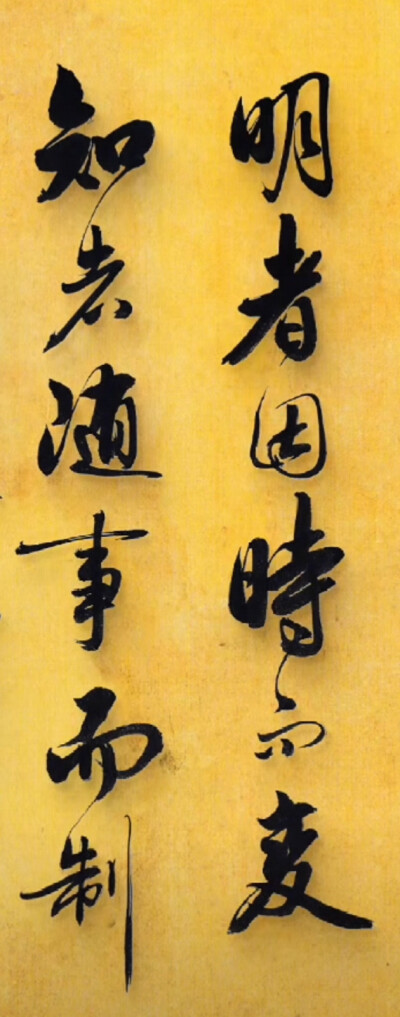 明者因時而变
知者随事而制